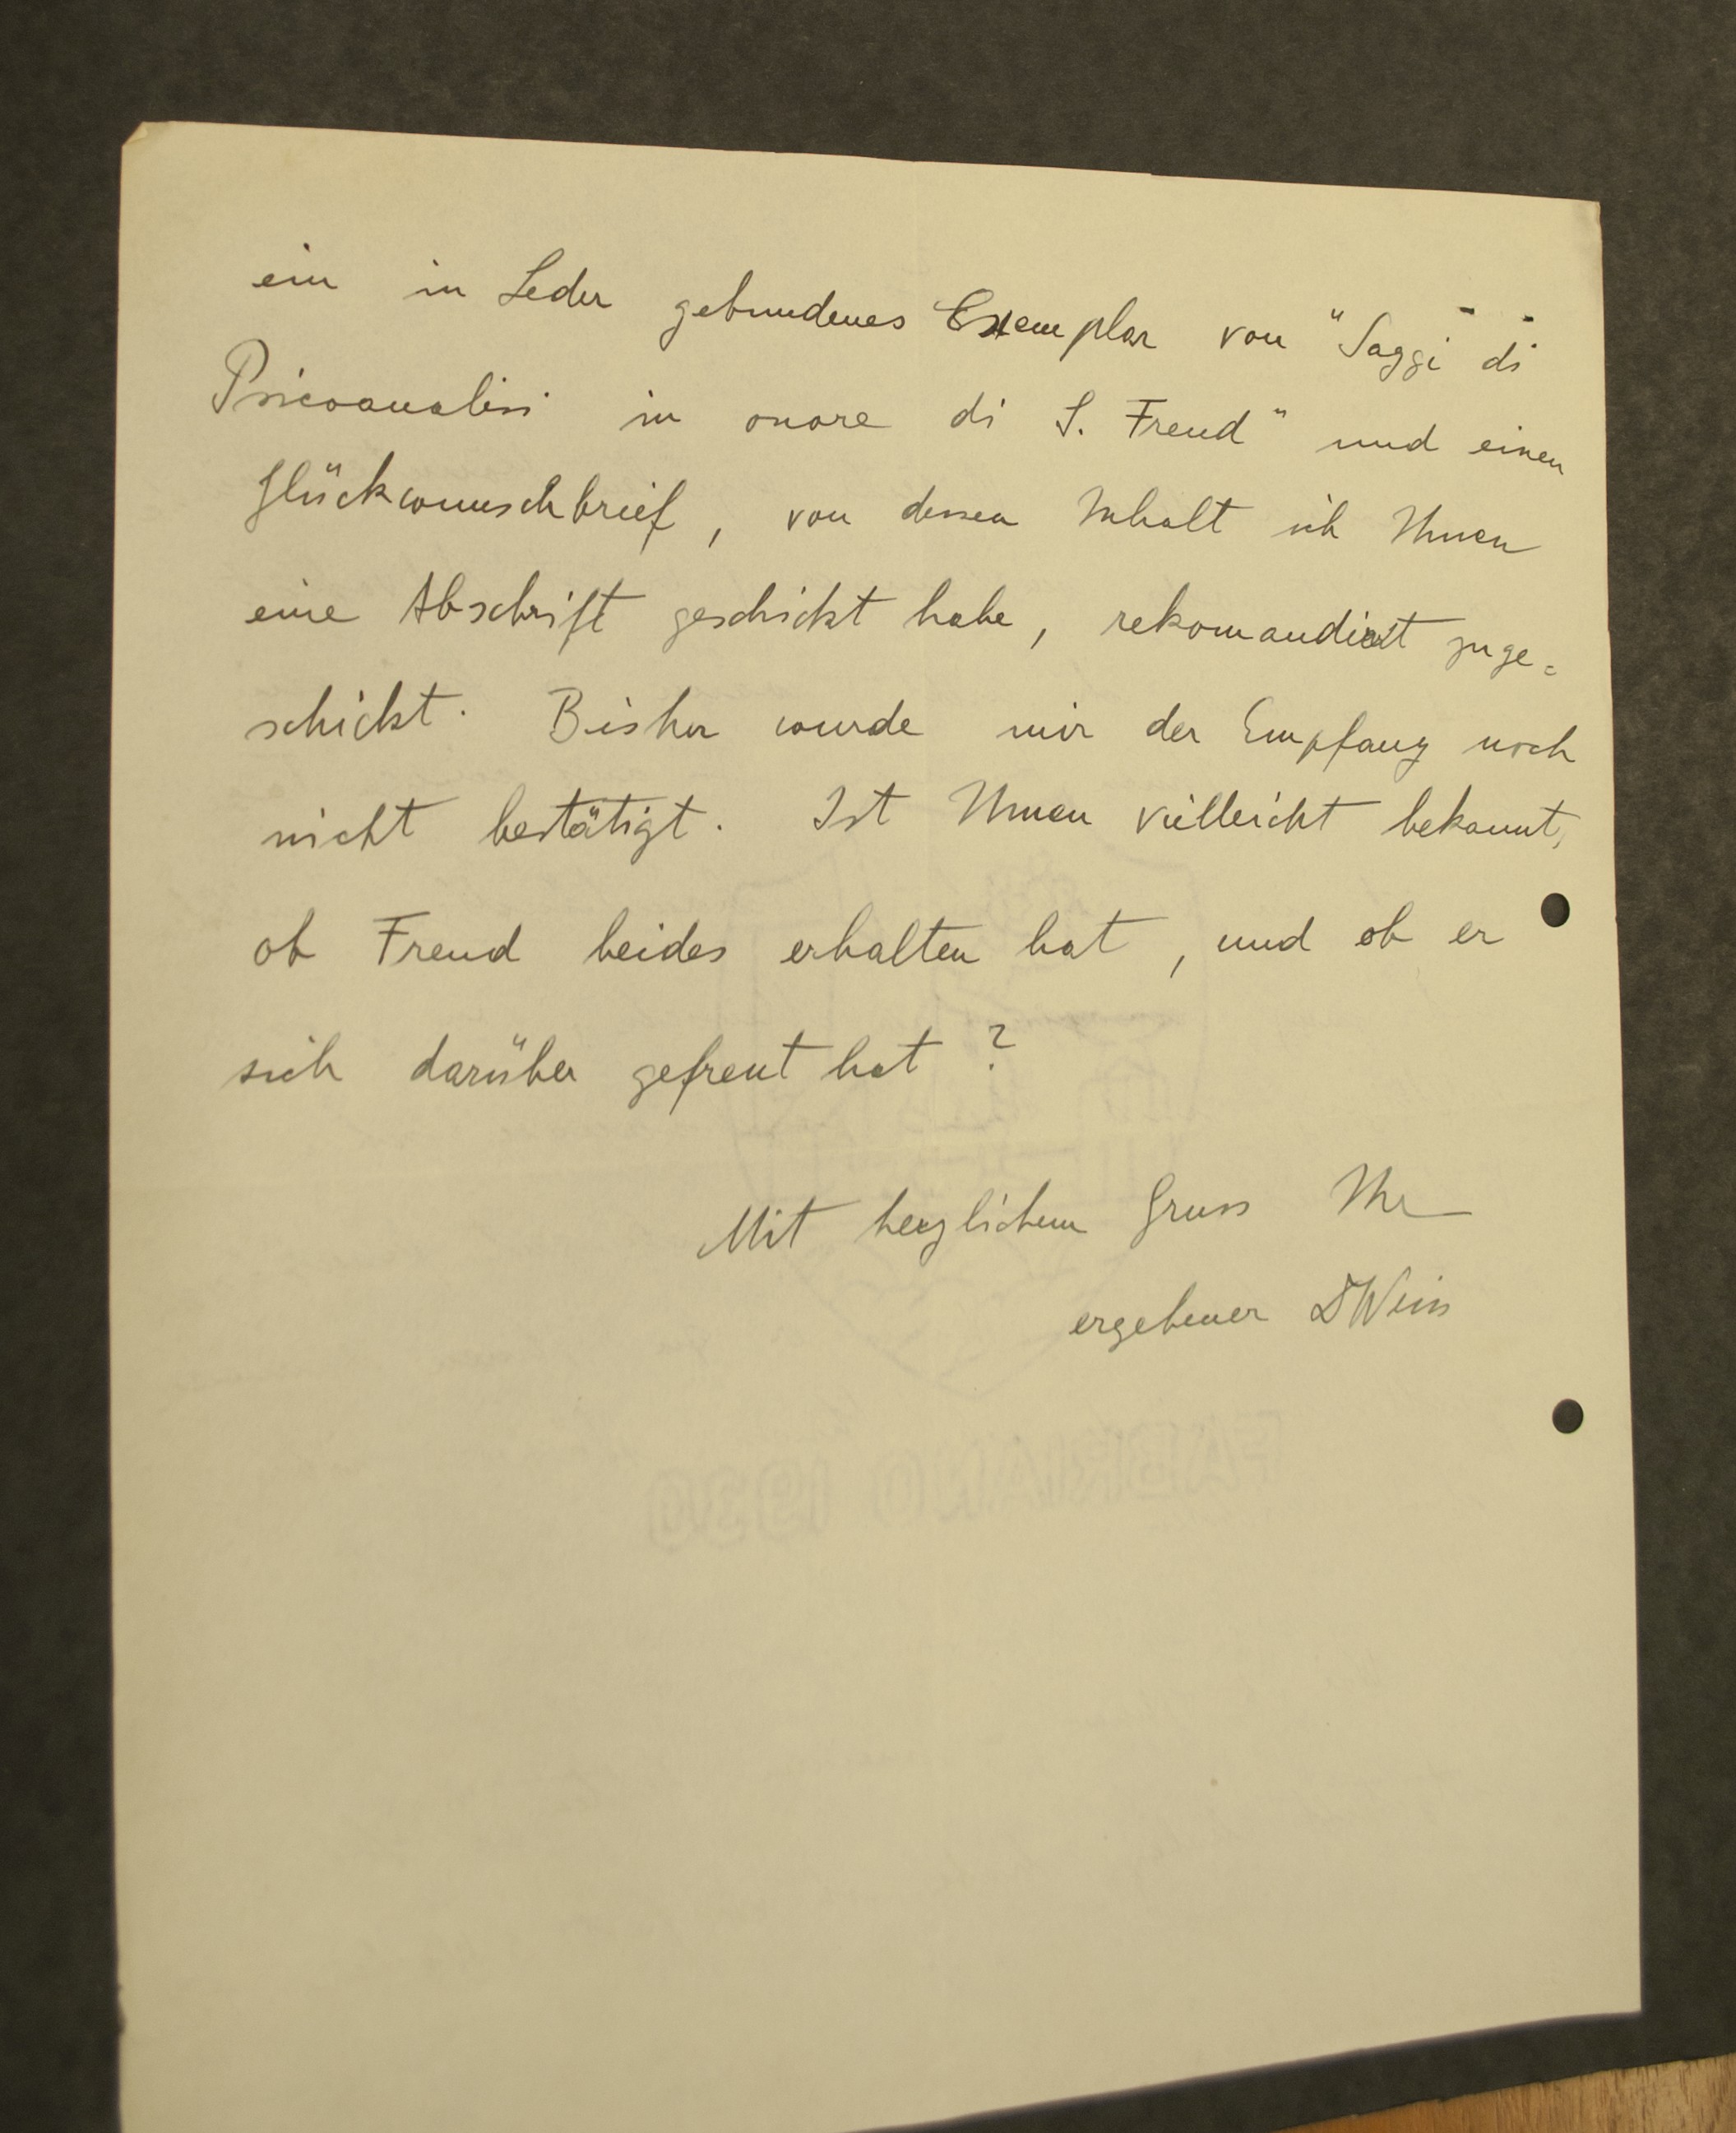 ein in Leder gebundenes Exemplar von "Saggi di
Psicoanalisi in onore di S. Freud" und einen
Glückwunschbrief, von dessen Inhalt ich Ihnen
eine Abschrift geschickt habe, rekomandiert zuge=
schickt. Bisher wurde mir der Empfang noch
nicht bestätigt. Ist Ihnen vielleicht bekannt,
ob Freud beides erhalten hat, und ob er
sich darüber gefreut hat?
Mit herzlichem Gruss Ihr
ergebener DWeiss
FABRIANO